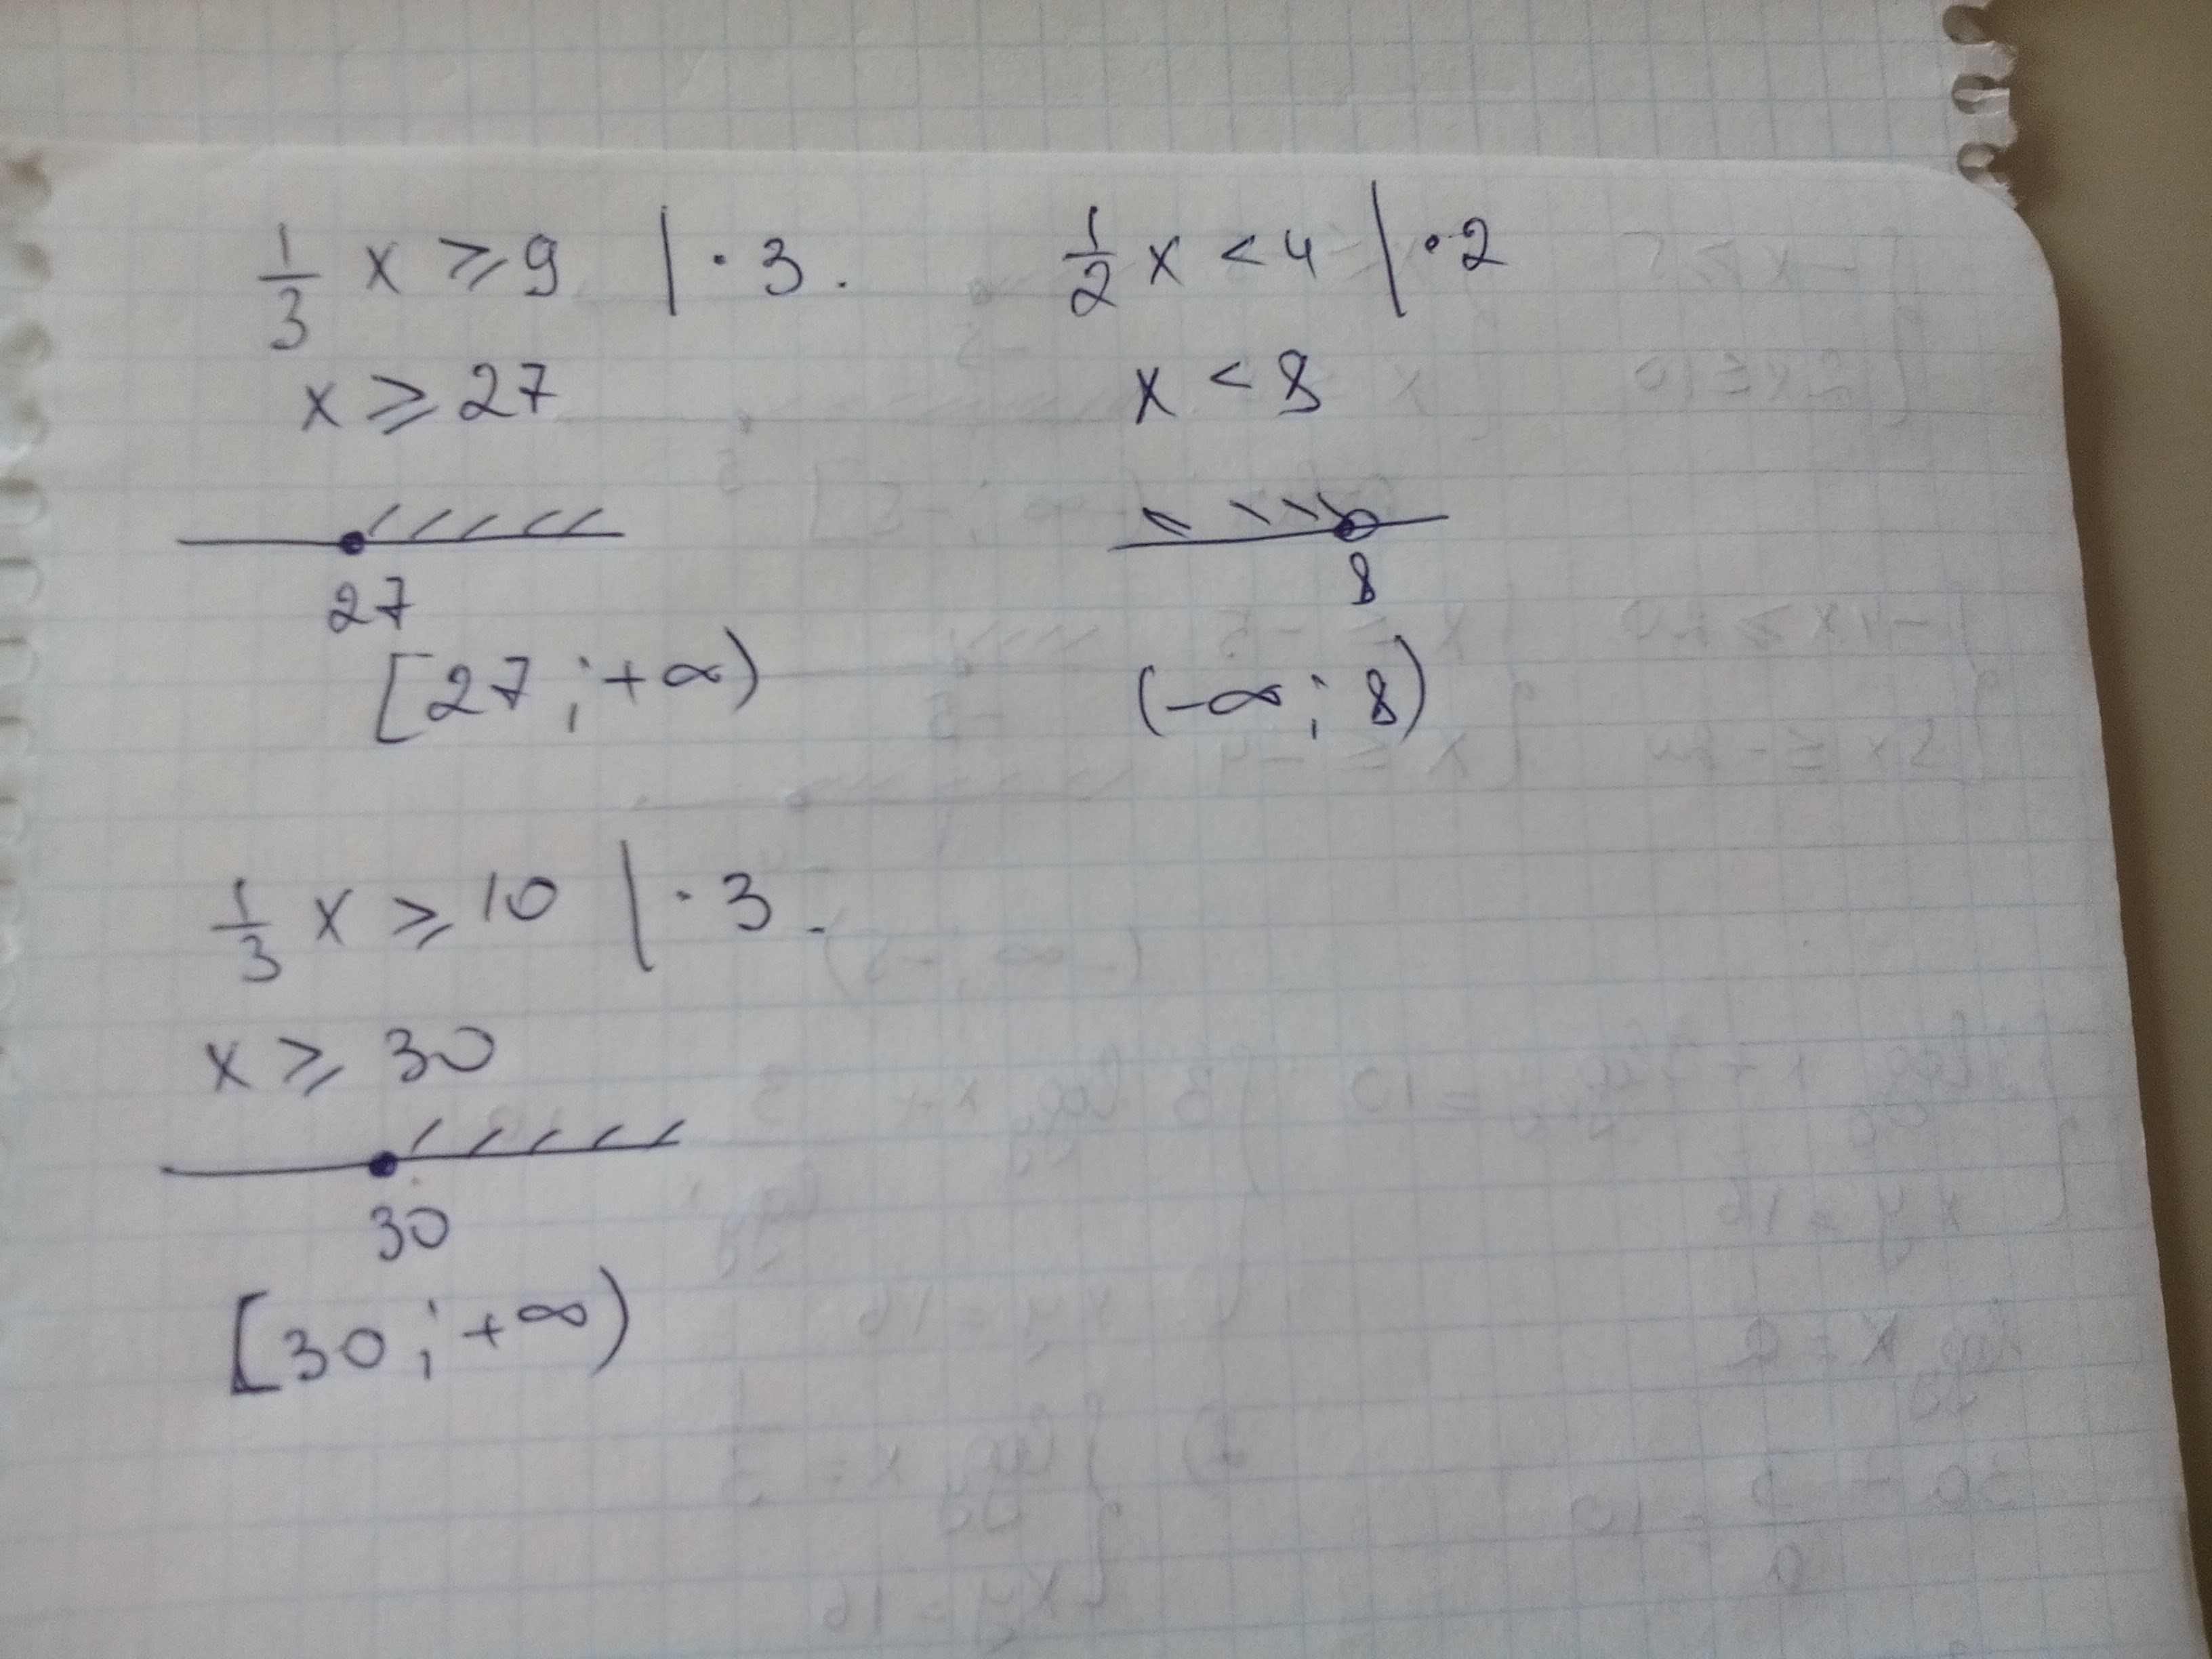 1/3 x ⩾ 9 | · 3.
x ⩾ 27
27
[27 ; +∞)
1/2 x < 4 | · 2
x < 8
8
(-∞ ; 8)
1/3 x ⩾ 10 | · 3.
x ⩾ 30
30
[30 ; +∞)